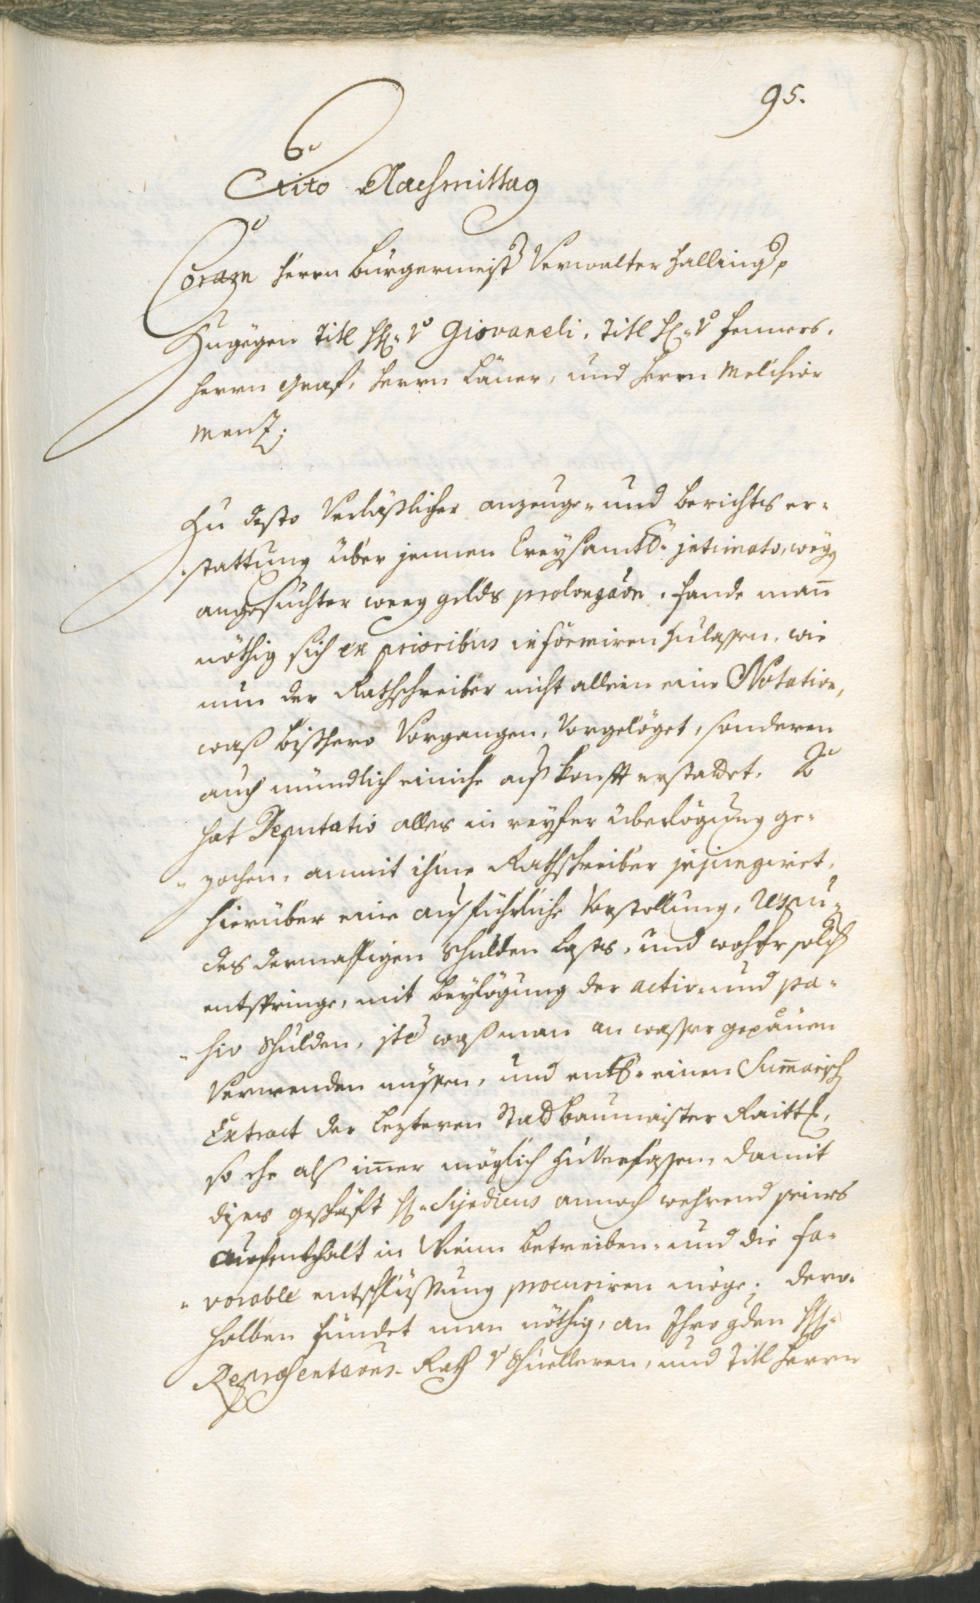 95.
Dito Nachmittag
Coram herrn Bürgermeistr Verwalter Hallingr.
Zugegen Titl HH: v Giovaneli, Titl H: v Hemers,
herrn Graf, herrn Laner, und herrn Melchior
Menz.
Zu desto Verläßlicher anzeuge- und berichts er-
stattung über jennen Creysambtl: intimato, wegen
angesuchter weeg gelds prolongaon, fande mann
nöthig sich ex prioribus informiren zulassen, wie
nun der Rathschreiber nicht allein eine Notation,
waß bißhero Vorgangen, Vorgelöget, sonderen
auch mündlich einiche auß konfft erstattet.
hat Deputatio alles in reyfer überlögung ge-
zochen, anmit ihme Rathschreiber injungiret,
hierüber eine ausführliche Vorstellung,
des dermahligen Schulden Lasts, und woher solch
entspringe, mit beylögung der activ- und pa-
ßiv Schulden, ite waß man an wasser gepäuen
Verwenden müssen, und entl: einen Summarisch
Extract der lezteren Stadtbaumaister Raittl:
so ehe alß immer möglich zuverfassen, damit
dises geschäft H: Syndicus annoch wehrend seines
Aufenthalt in Wienn betreiben- und die fa-
vorable entschlüssung procuriren möge; dero-
halben fündet man nöthig, an Ihro gden HH:
Repræsentaons- Rath v Schuelleren, und Titl herrn